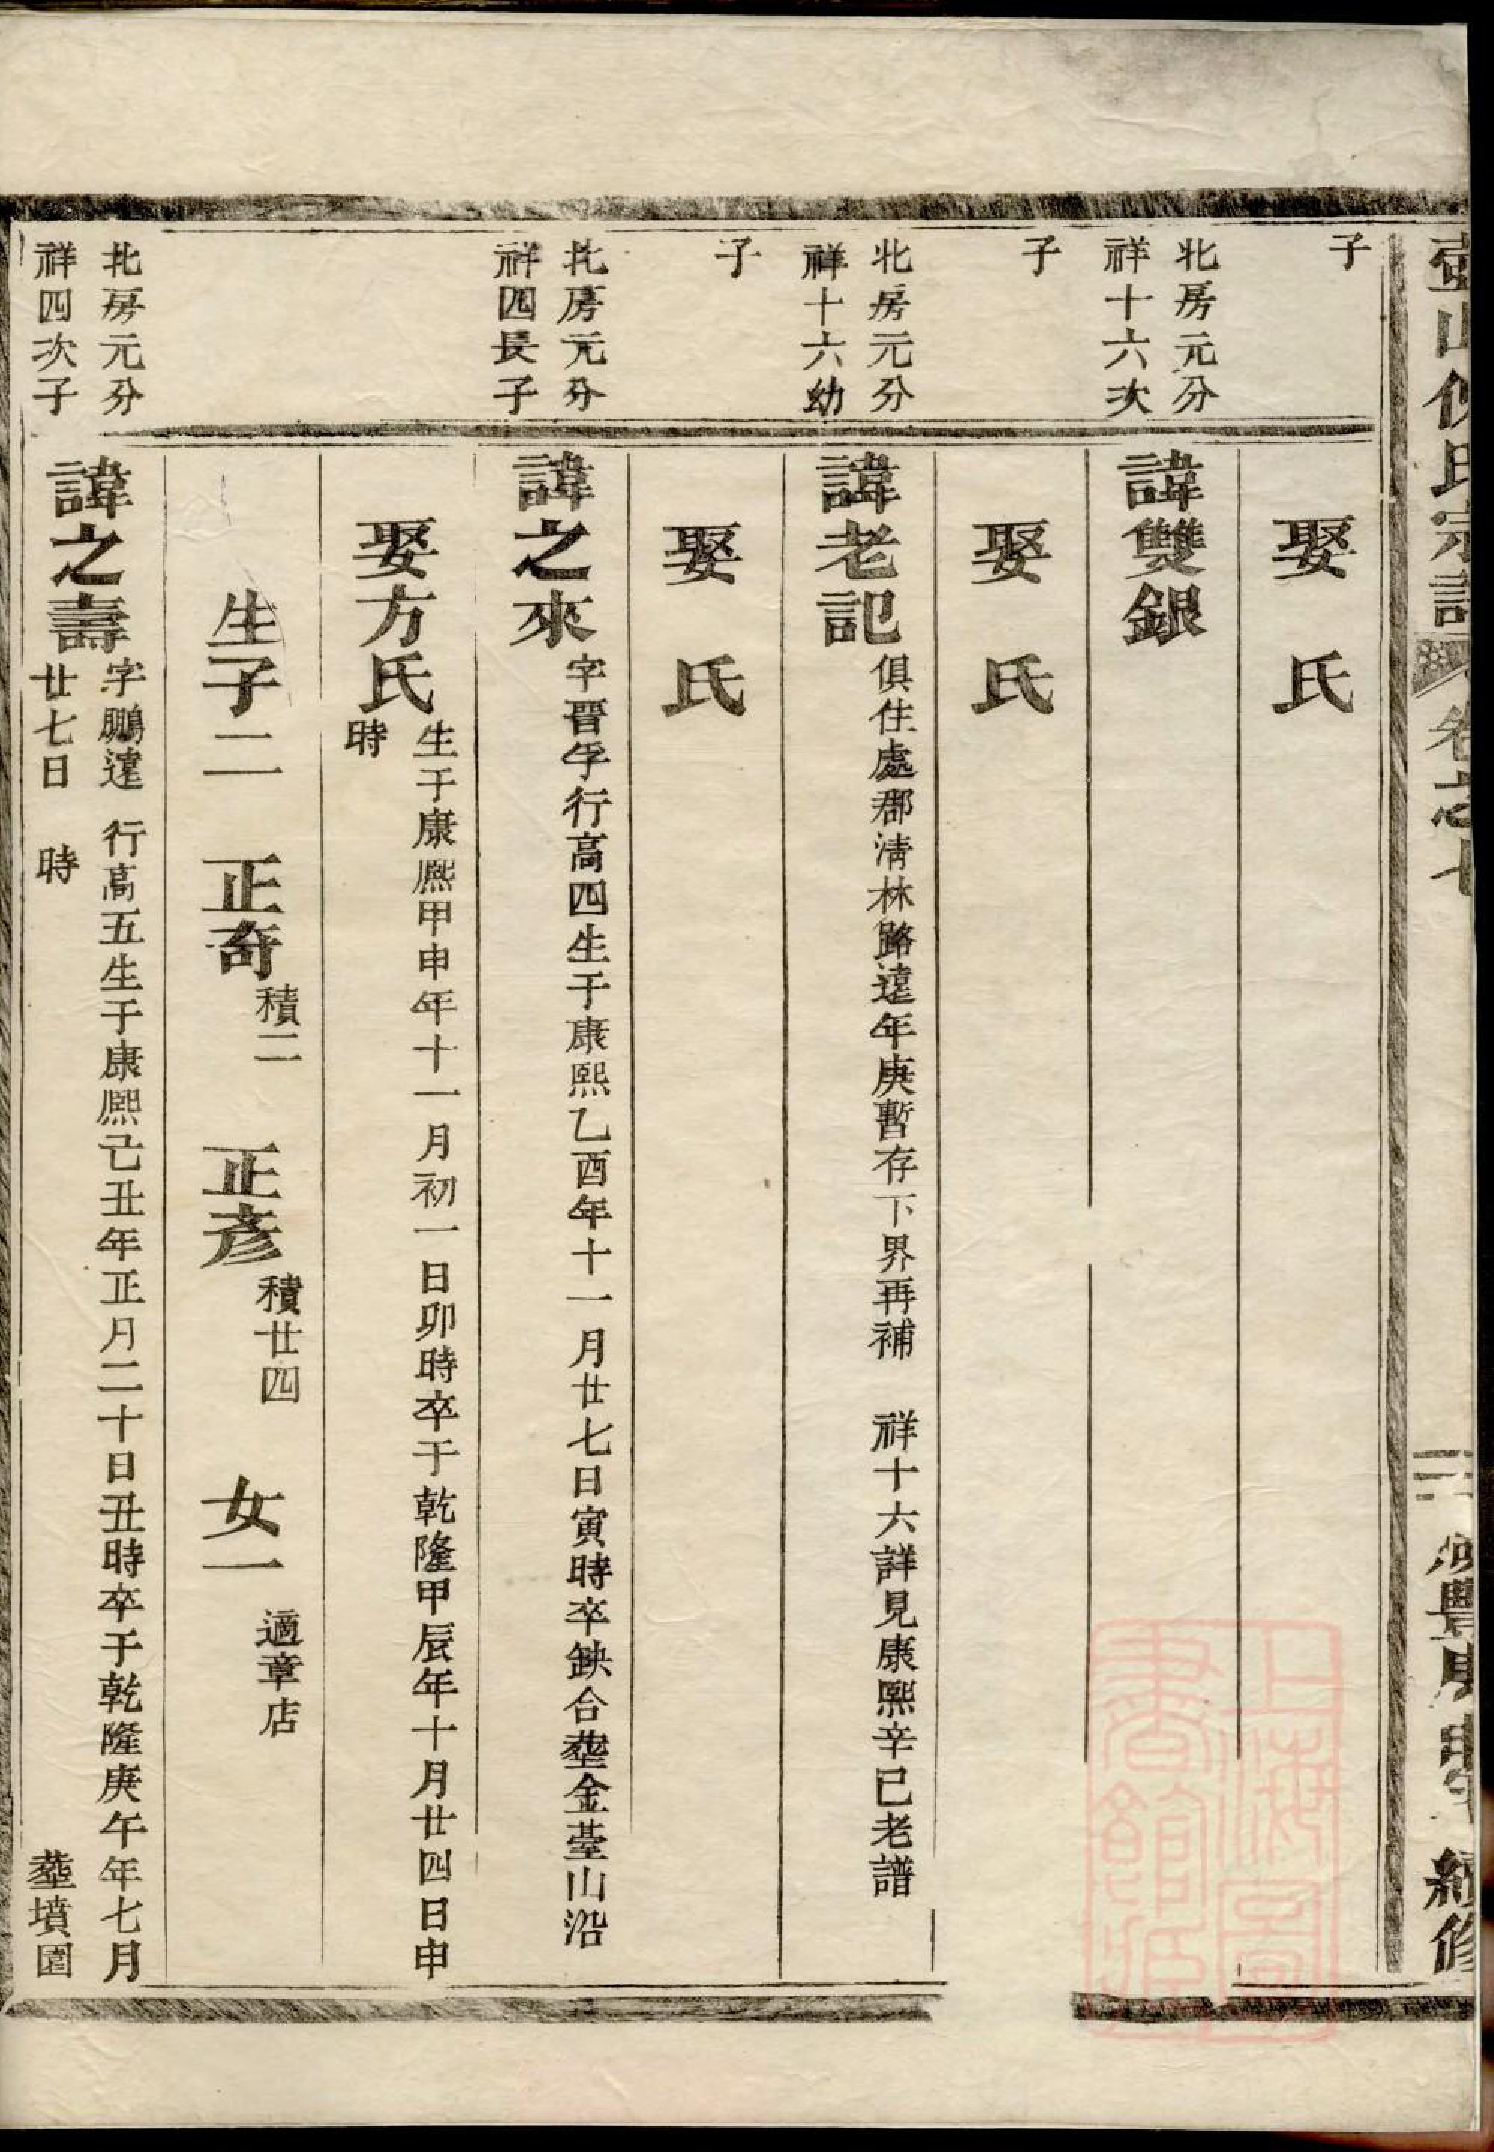 山 氏宗譜 卷之七 豐 續修
子
娶 氏
北房元分
祥十六次
諱雙銀
子
娶 氏
北房元分
祥十六幼
諱老記 俱住處郡淸林路遠年庚暫存下界再補 祥十六詳見康熙辛巳老譜
子
娶 氏
北房元分
祥四長子
諱之來 字晋孚行高四生于康熙乙酉年十一月廿七日寅時卒缺合塟金臺山沿
娶方氏 生于康熙甲申年十一月初一日卯時卒于乾隆甲辰年十月廿四日申
時
生子二 正奇 積二 正彥 積廿四 女一 適章店
北房元分
祥四次子
諱之壽 字鵬遠 行高五生于康熙己丑年正月二十日丑時卒于乾隆庚午年七月
廿七日 時 塟墳園
上海圖
書館藏